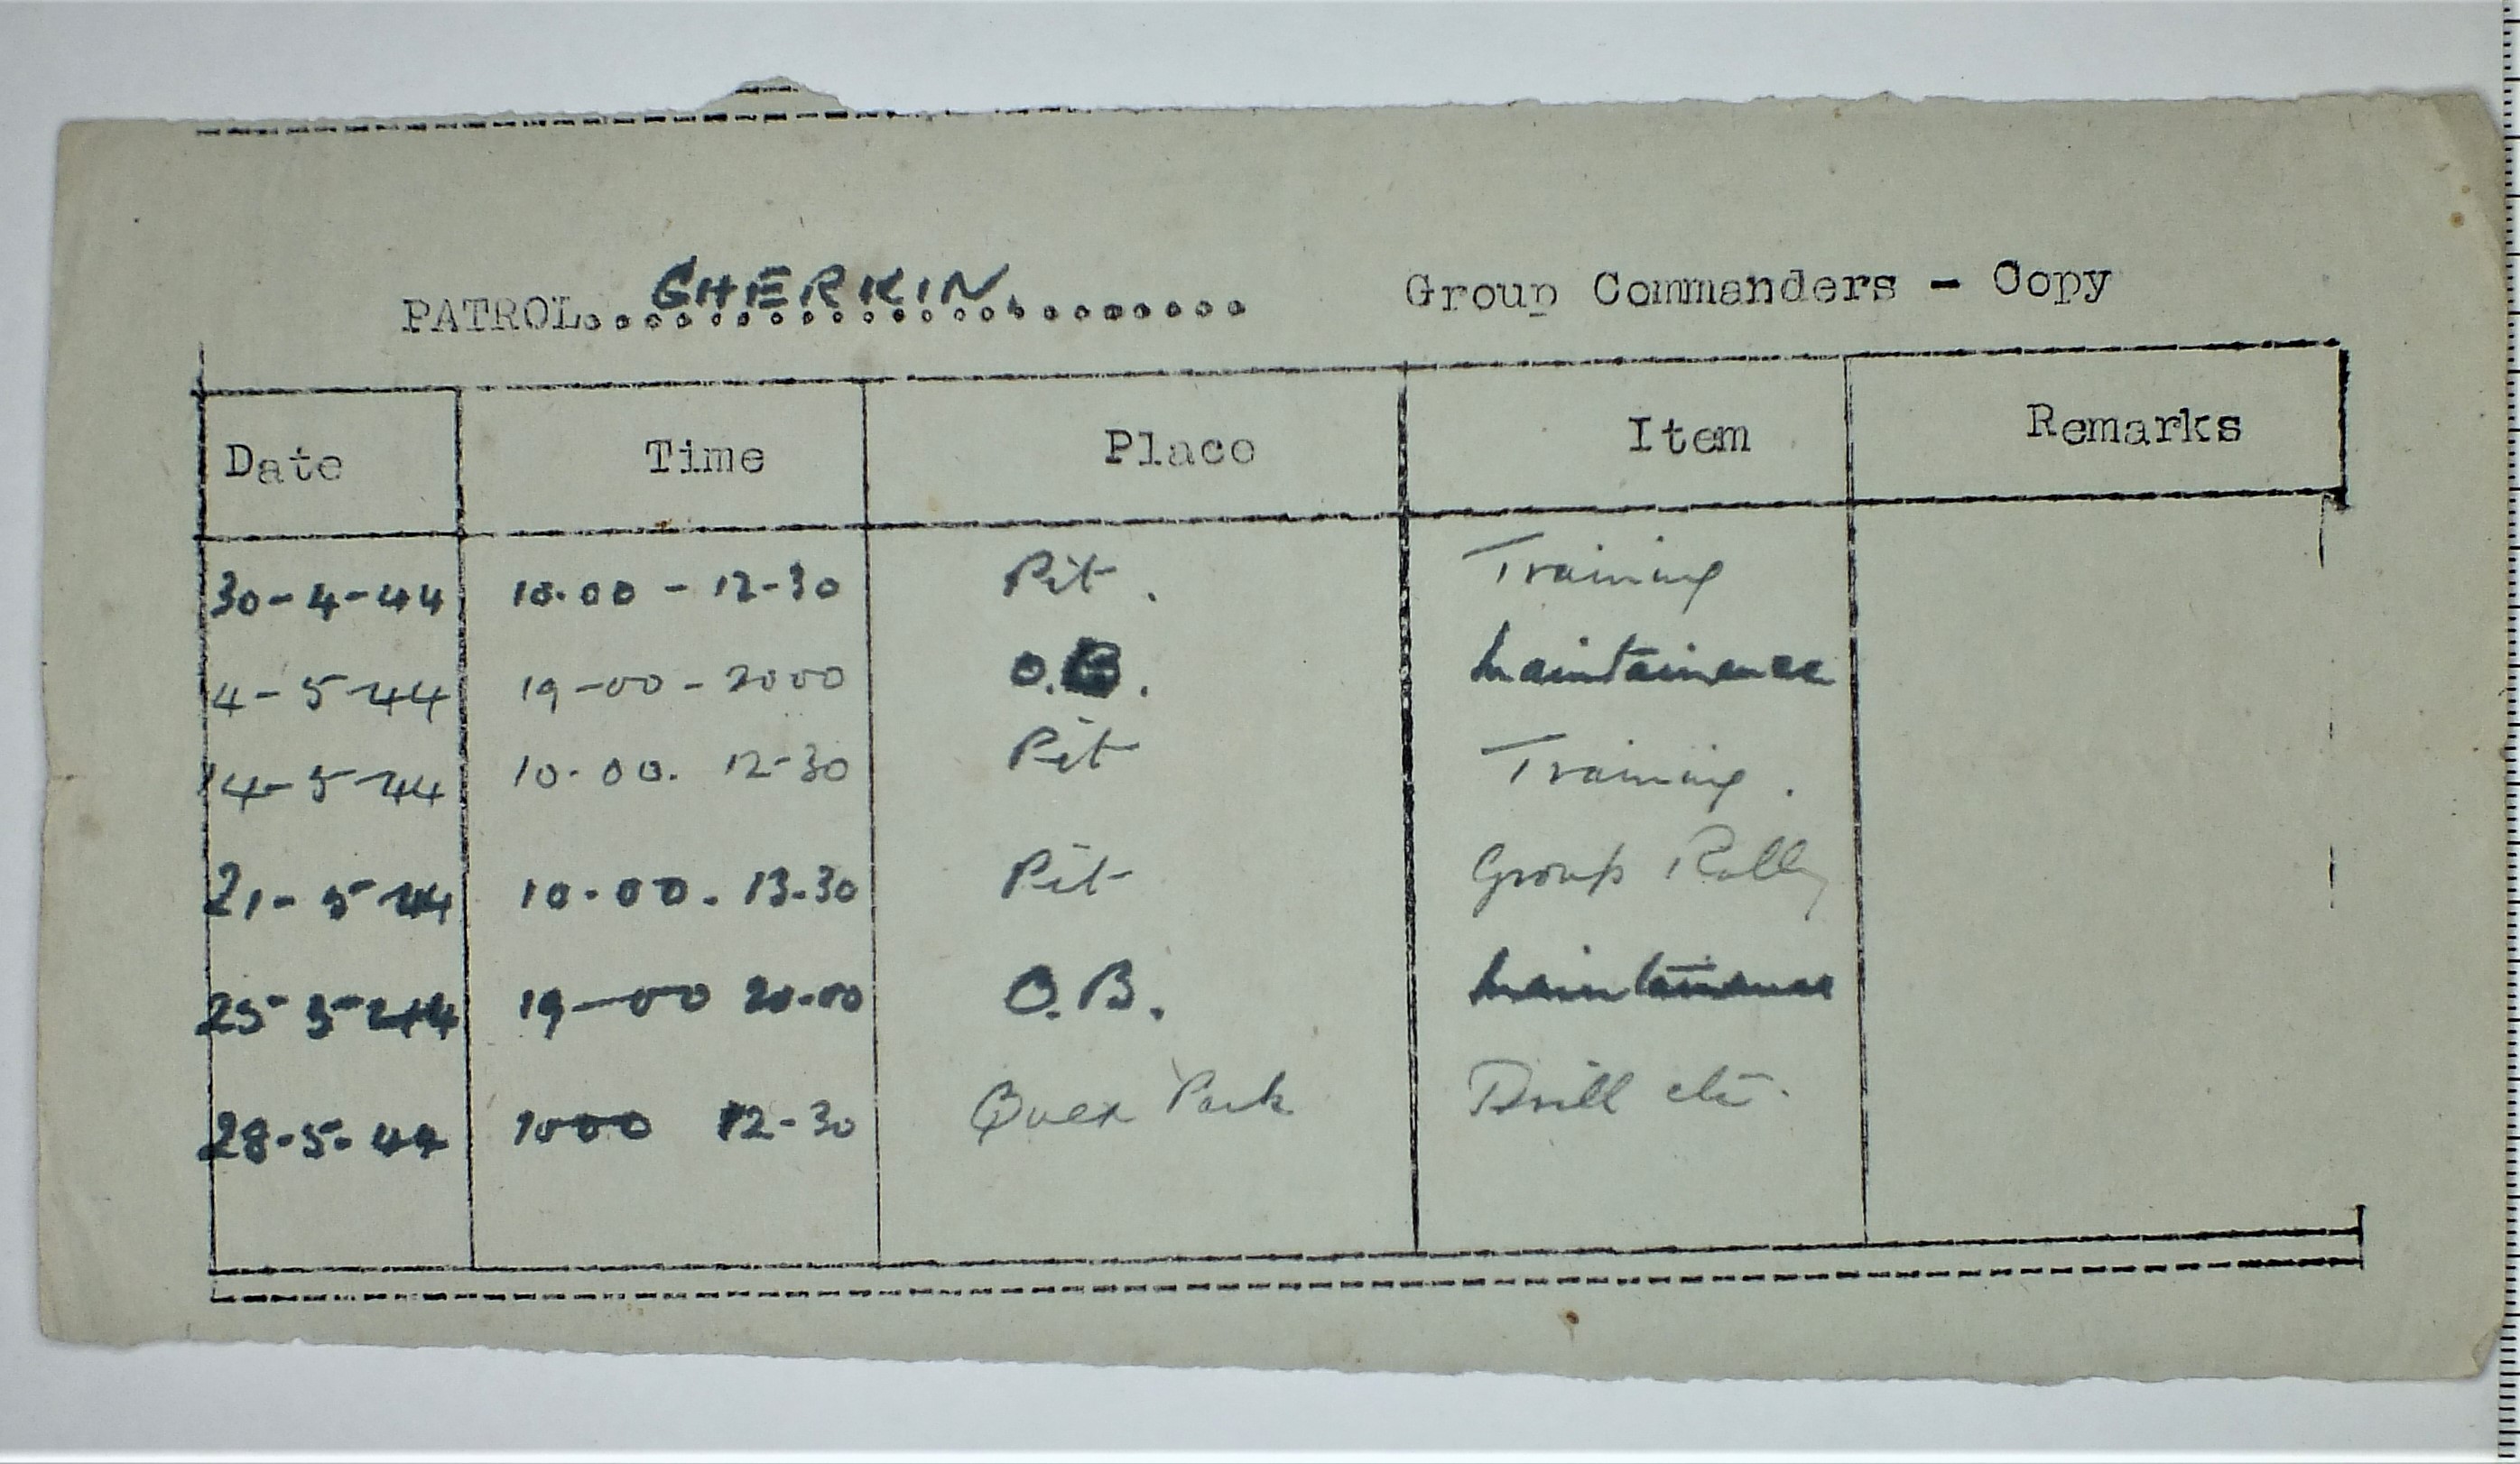 PATROL....GHERKIN............ Group Commanders - Copy
Date Time Place Item Remarks
30-4-44 10.00 - 12-30 Pit. Training
4-5-44 19-00-2000 O.B. Maintainence
14-5-44 10.00. 12-30 Pit Training.
21-5-44 10.00. 13.30 Pit Group Rally
25-5-44 19-00 20.00 O.B. Maintainence
28.5.44 1000 12-30 Quex Park Drill etc.